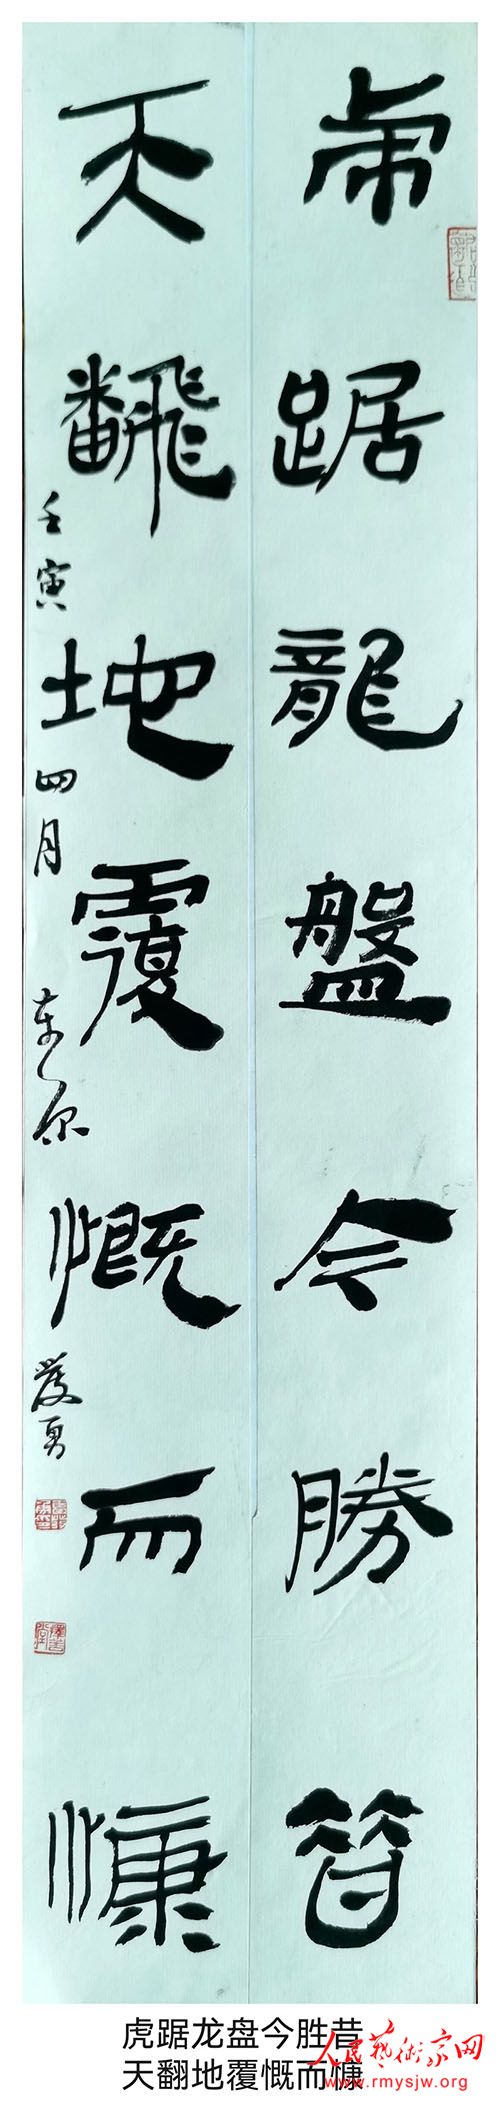 虎踞龍盤今勝昔
天翻地覆慨而慷
壬寅四月
虎踞龙盘今胜昔
天翻地覆慨而慷
人民艺术家网
www.rmysjw.org